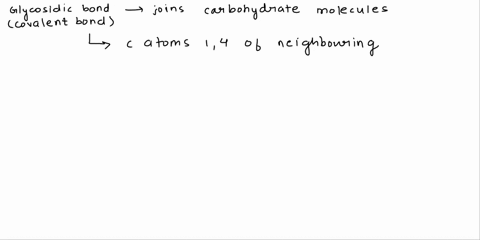 Glycosidic bond → joins carbohydrate molecules
(covalent bond)
↳ c atoms 1,4 of neighbouring